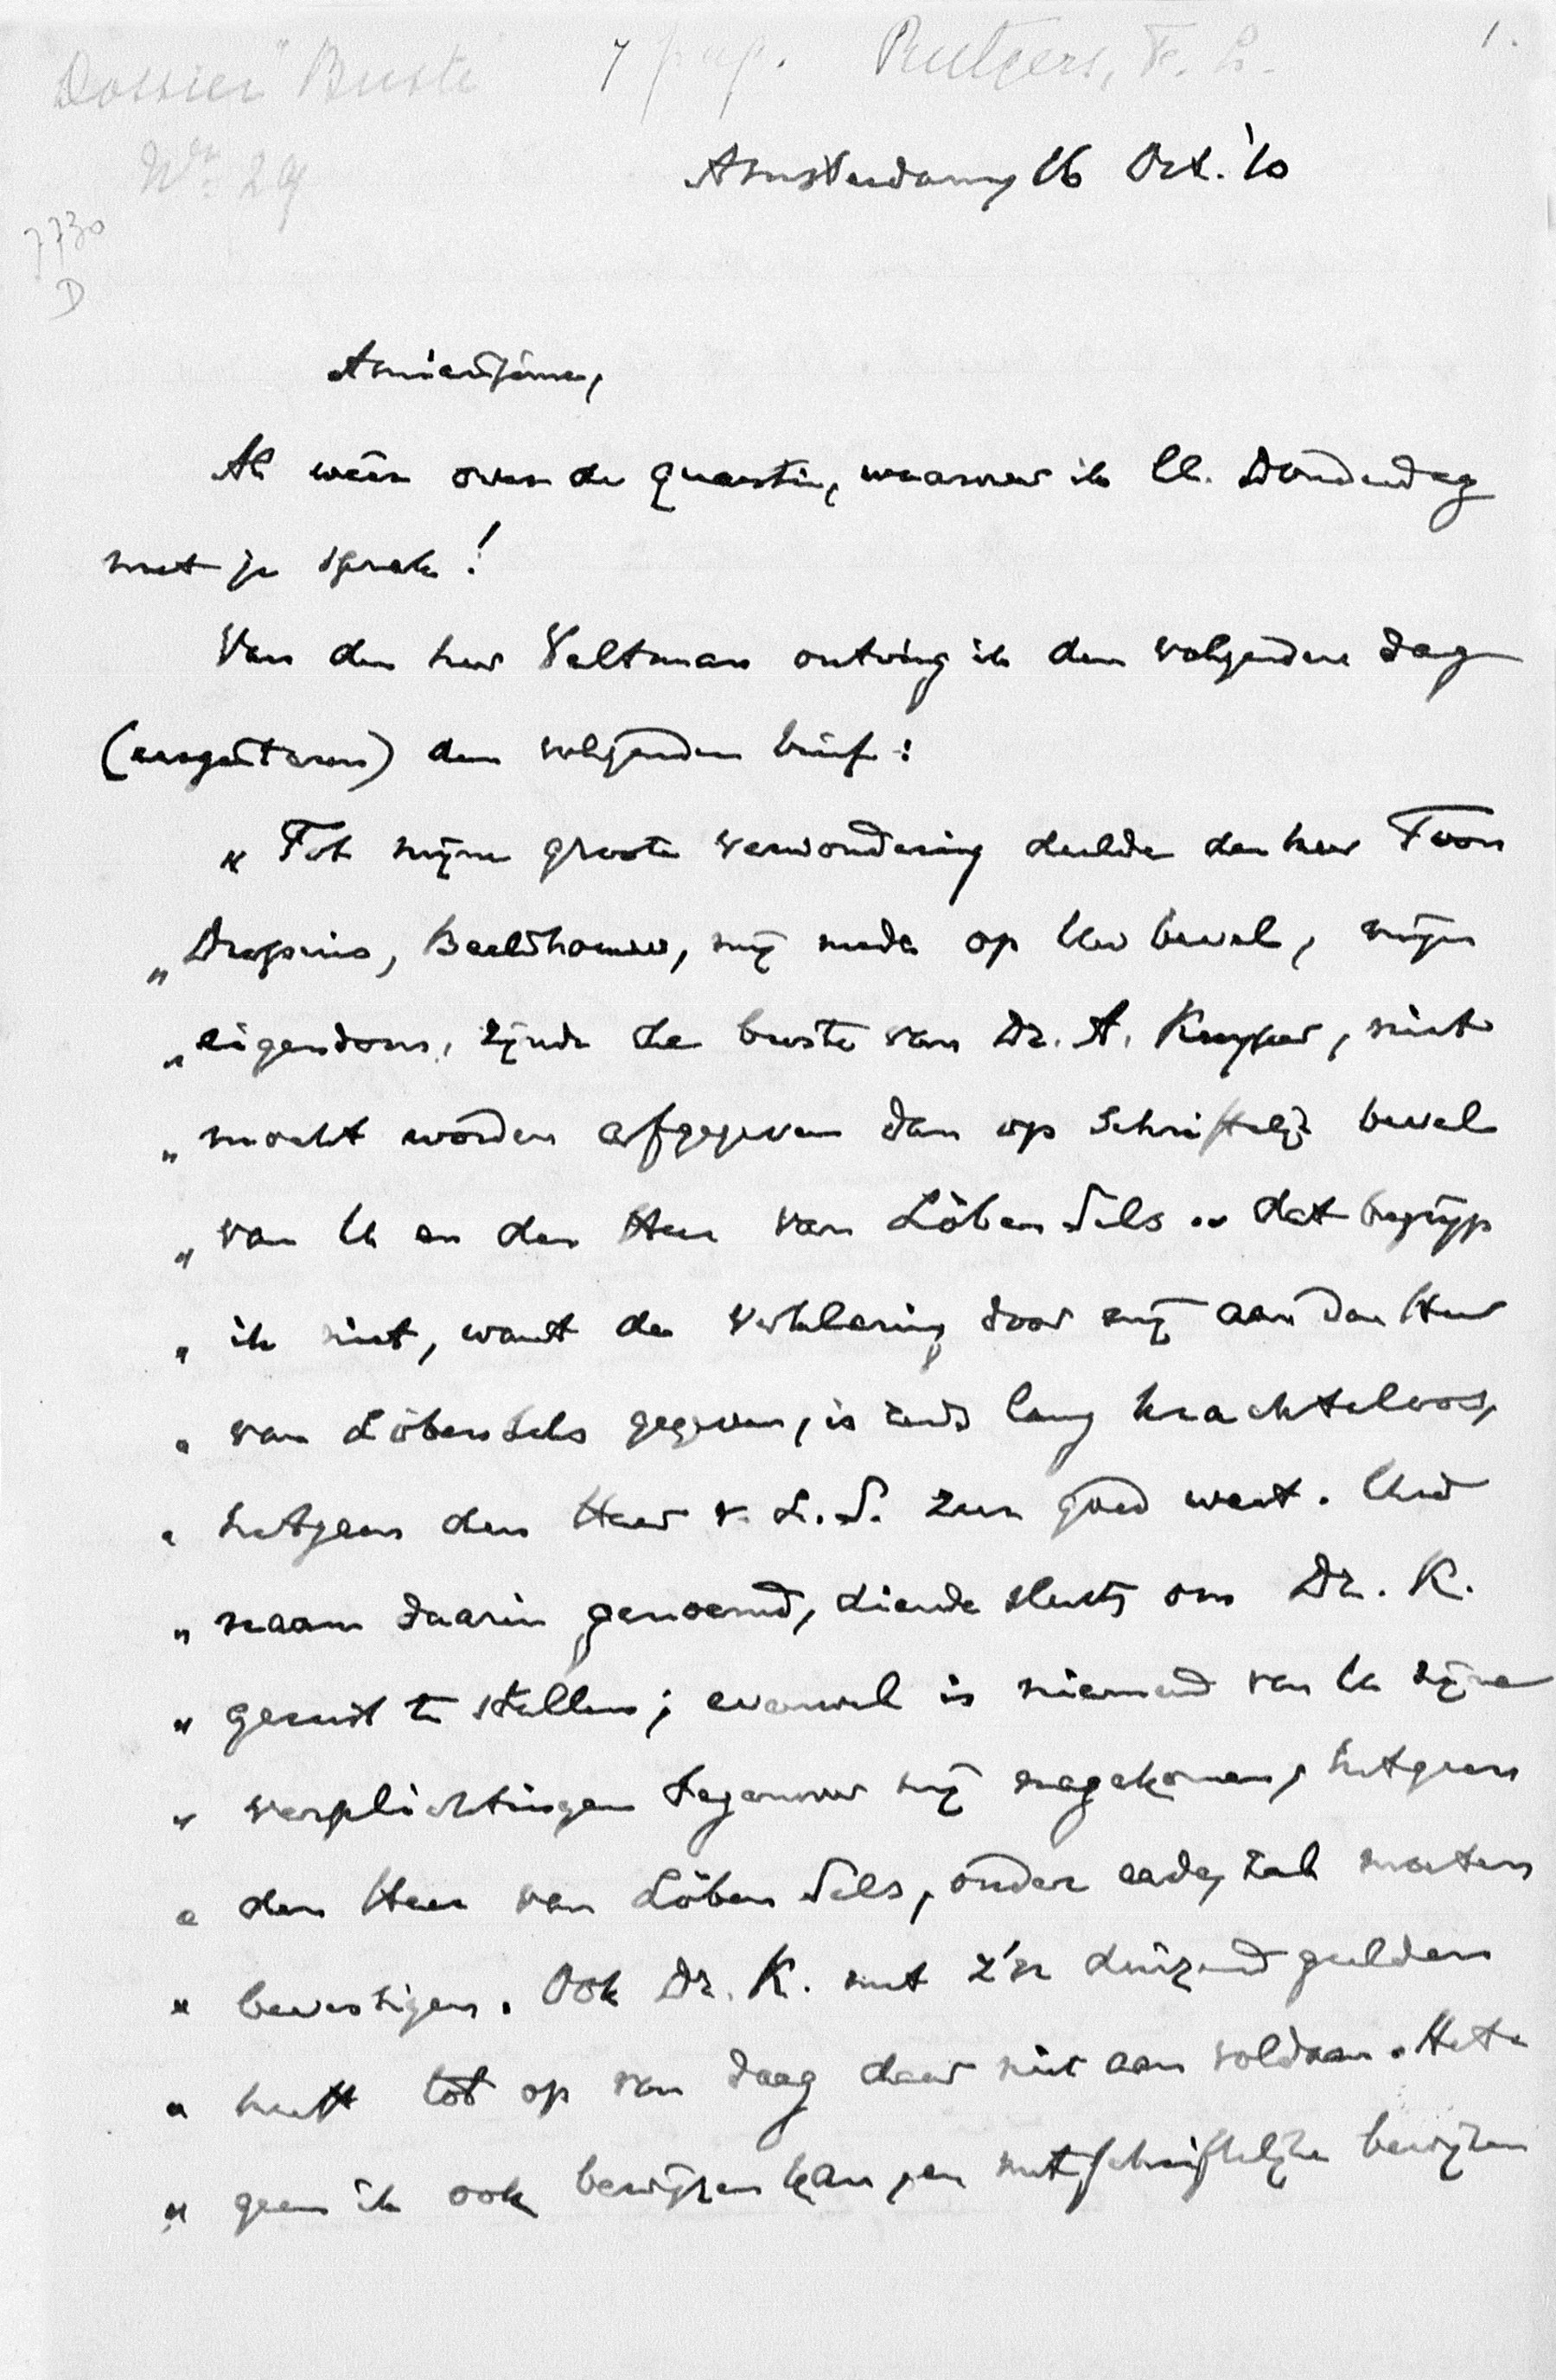 Dossier "Buste 7 pag. Rutgers, F. L. 1.
No. 29
7730
D
Amsterdam, 16 Oct. '10
Amicissime,
Al weêr over de quaestie, waarover ik ll. Donderdag
met je sprak!
Van den heer Veltman ontving ik den volgenden dag
(eergisteren) den volgenden brief:
"Tot mijne groote verwondering deelde de heer Toon
"Dupuis, Beeldhouwer, mij mede op Uw bevel, mijn
"eigendom, zijnde de buste van Dr. A. Kuyper, niet
"mocht worden afgegeven dan op schriftelijk bevel
"van U en den Heer van Löben Sels .. dat begrijp
"ik niet, want de verklaring door mij aan den Heer
"van Löben Sels gegeven, is reeds lang krachteloos,
"hetgeen den Heer v. L. S. zeer goed weet. Uw
"naam daarin genoemd, diende slechts om Dr. K.
"gerust te stellen; evenwel is niemand van U zijne
"verplichtingen tegenover mij nagekomen, hetgeen
"den Heer van Löben Sels, onder eede, zal moeten
"bevestigen. Ook Dr. K. met z'n duizend gulden
"heeft tot op van daag daar niet aan voldaan. Het-
"geen ik ook bewijzen kan, en met schriftelijke bewijzen